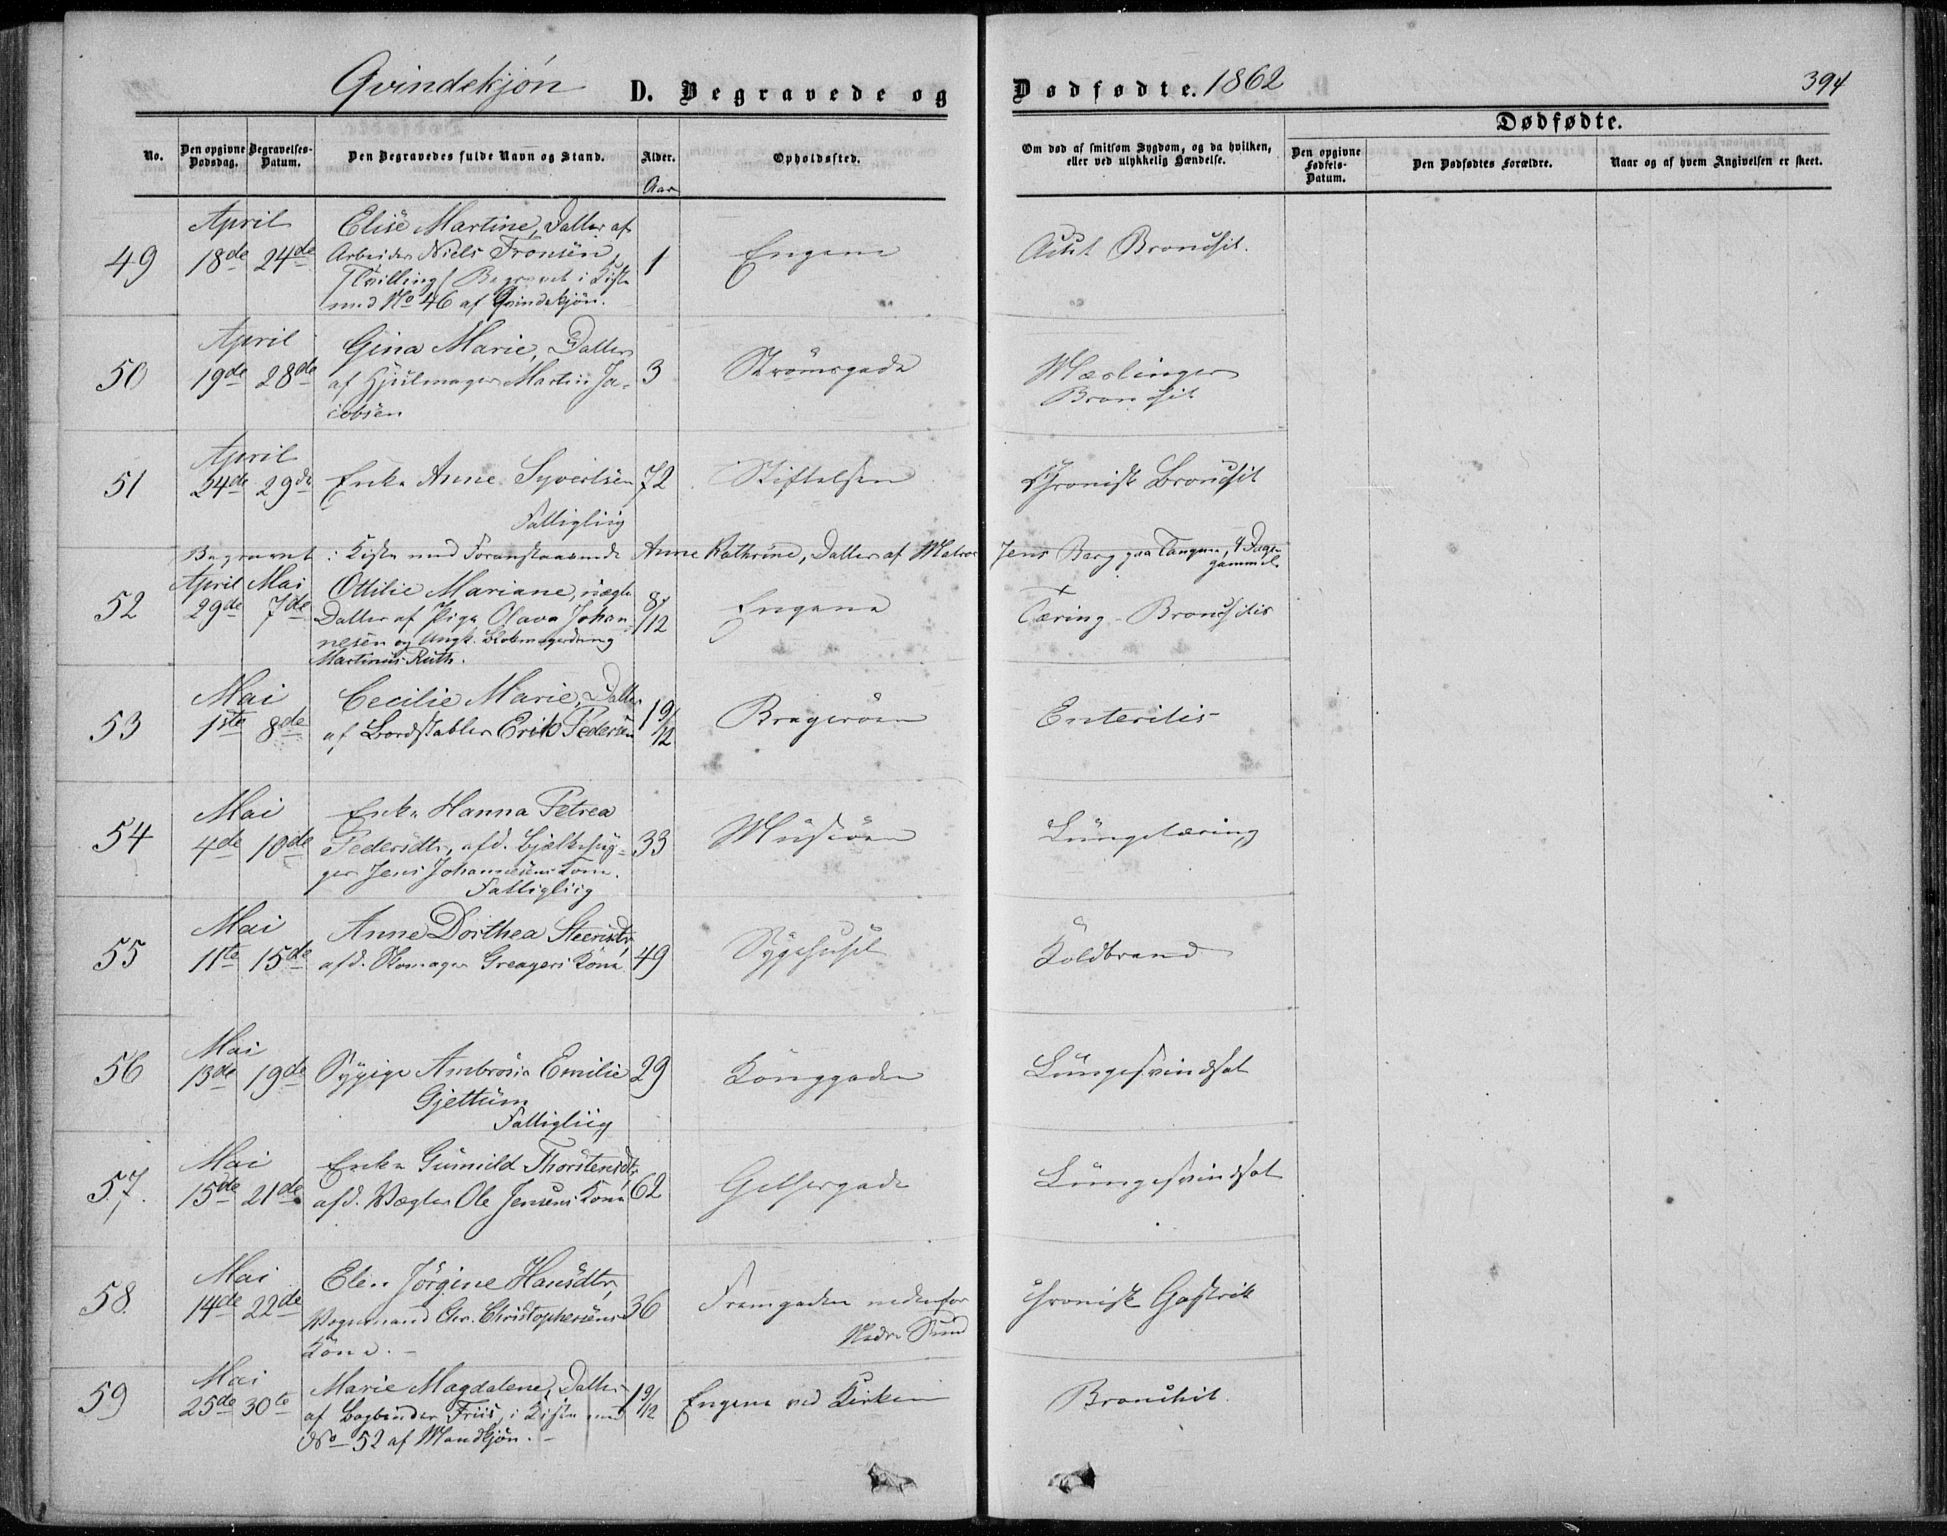 Qvindekjön D. Begravede og Dødfødte. 1862 394
Dødfødte.
No. Den opgivne Dødsdag. Begravelses-Datum. Den Begravedes fulde Navn og Stand. Alder. Opholdssted. Om død af smitsom Sygdom, og da hvilken, eller ved ulykkelig Hændelse. Den opgivne Fødsels-Datum. Den Dødfødtes Forældre. Naar og af hvem Angivelsen er skeet.
Aar
April Elise Martine, Datter af
49 18de 24de Arbeider Niels Fronsen, 1 Engene Acut Bronchit.
Tvilling Begravet i Kiste
med No 46 af Qvindekjön.
April Gina Marie, Datter
50 19de 28de af Hjulmager Martin Ja- 3 Strömsgade Mæslinger
cobsen Bronchit
April
51 24de 29de Enke Anne Syvertsen 72 Stiftelsen Chronisk Bronchit
Fattigliig
Begravet i Kiste med Foranstaaende Anne Kathrine, Datter af Matros Jens Berg paa Tangen, 4 Dage
gammel.
April Mai Ottilie Mariane, uægte
52 29de 7de Datter af Pige Olava Johan- 8/12 Engene Tæring - Bronchitis
nesen og Ungk.
Martinus Ruth.
Mai Cecilie Marie, Datter
53 1ste 8de af Bordstabler Erik Pedersen 1 9/12 Bragerøen Enteritis
Mai Enke Hanna Petrea
54 4de 10de Pedersdtr, afd. Bjelkehug- 33 Musöen Lungetæring
ger Jens Johannesens Kone.
Fattigliig
Mai Anne Dorthea
55 11te 15de afd. Skomager Greagers Kone 49 Sygehuset Koldbrand
Mai
56 13de 19de Sypige Ambrosia Emilie 29 Konggaden Lungesvindsot
Gjettum
Fattigliig
Mai Enke Gunild Thorstensdtr,
57. 15de 21de afd. Vægter Ole Jensens Kone 62 Gethergade Lungesvindsot
Mai Elen Jörgine Hansdtr,
58. 14de 22de Vognmand Chr. Christophersens 36 Framgaden nedenfor Chronisk Gastrit
Kone. - Nedre Sund
Mai Marie Magdalene, Datter
59 25de 30te af Bogbinder Friis, i Kiste med 1 9/12 Engene ved Kirken Bronchit.
No 52 af Mandkjön. -